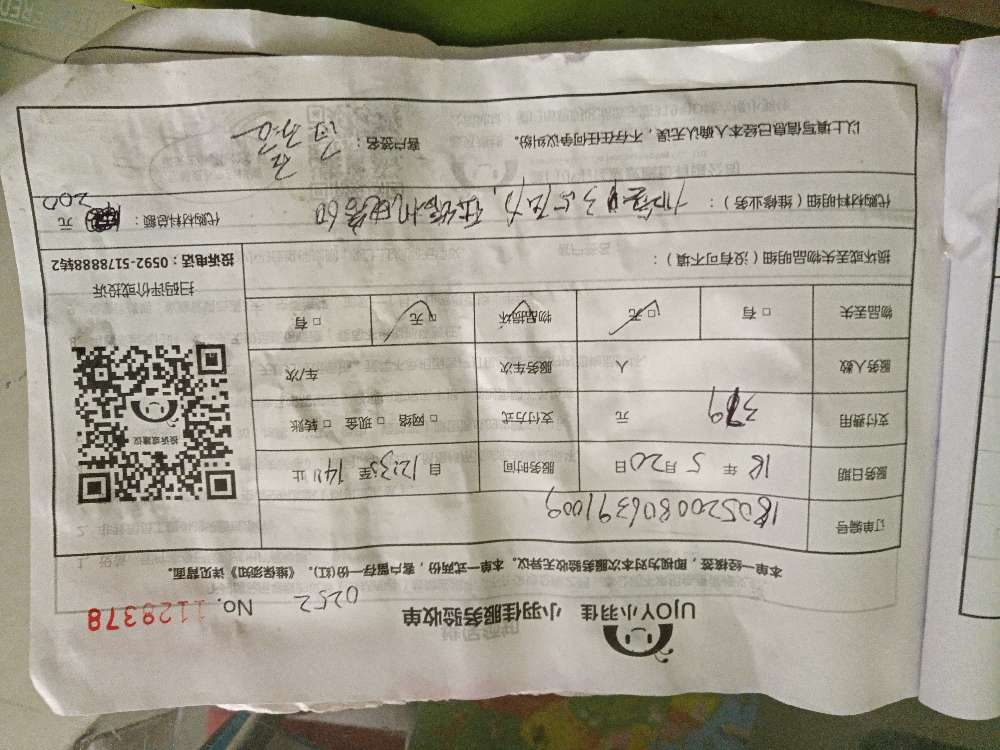 UJOY小羽佳 小羽佳服务验收单
0252
No. 1129378
本单一经接签，即视为对本次服务验收无异议。本单一式两份，客户留存一份(红)。《维保须知》详见背面。
订单编号 1805200806391009
服务日期 18 年 5 月 20 日 服务时间 自 12:35 至 14:11 止
支付费用 379 元 支付方式 □ 网络 □ 现金 □ 转账
服务人数 人 服务车次 车/次
物品丢失 □ 有 □ 无 物品损坏 □ 无 □ 有
投诉或建议
扫码评价或投诉
投诉电话：0592-5178888转2
损坏或丢失物品明细（没有可不填）：
代购材料明细（维修业务）：
代购材料总额： 200 元
以上填写信息已经本人确认无误，不存在任何争议纠纷。 客户签名：